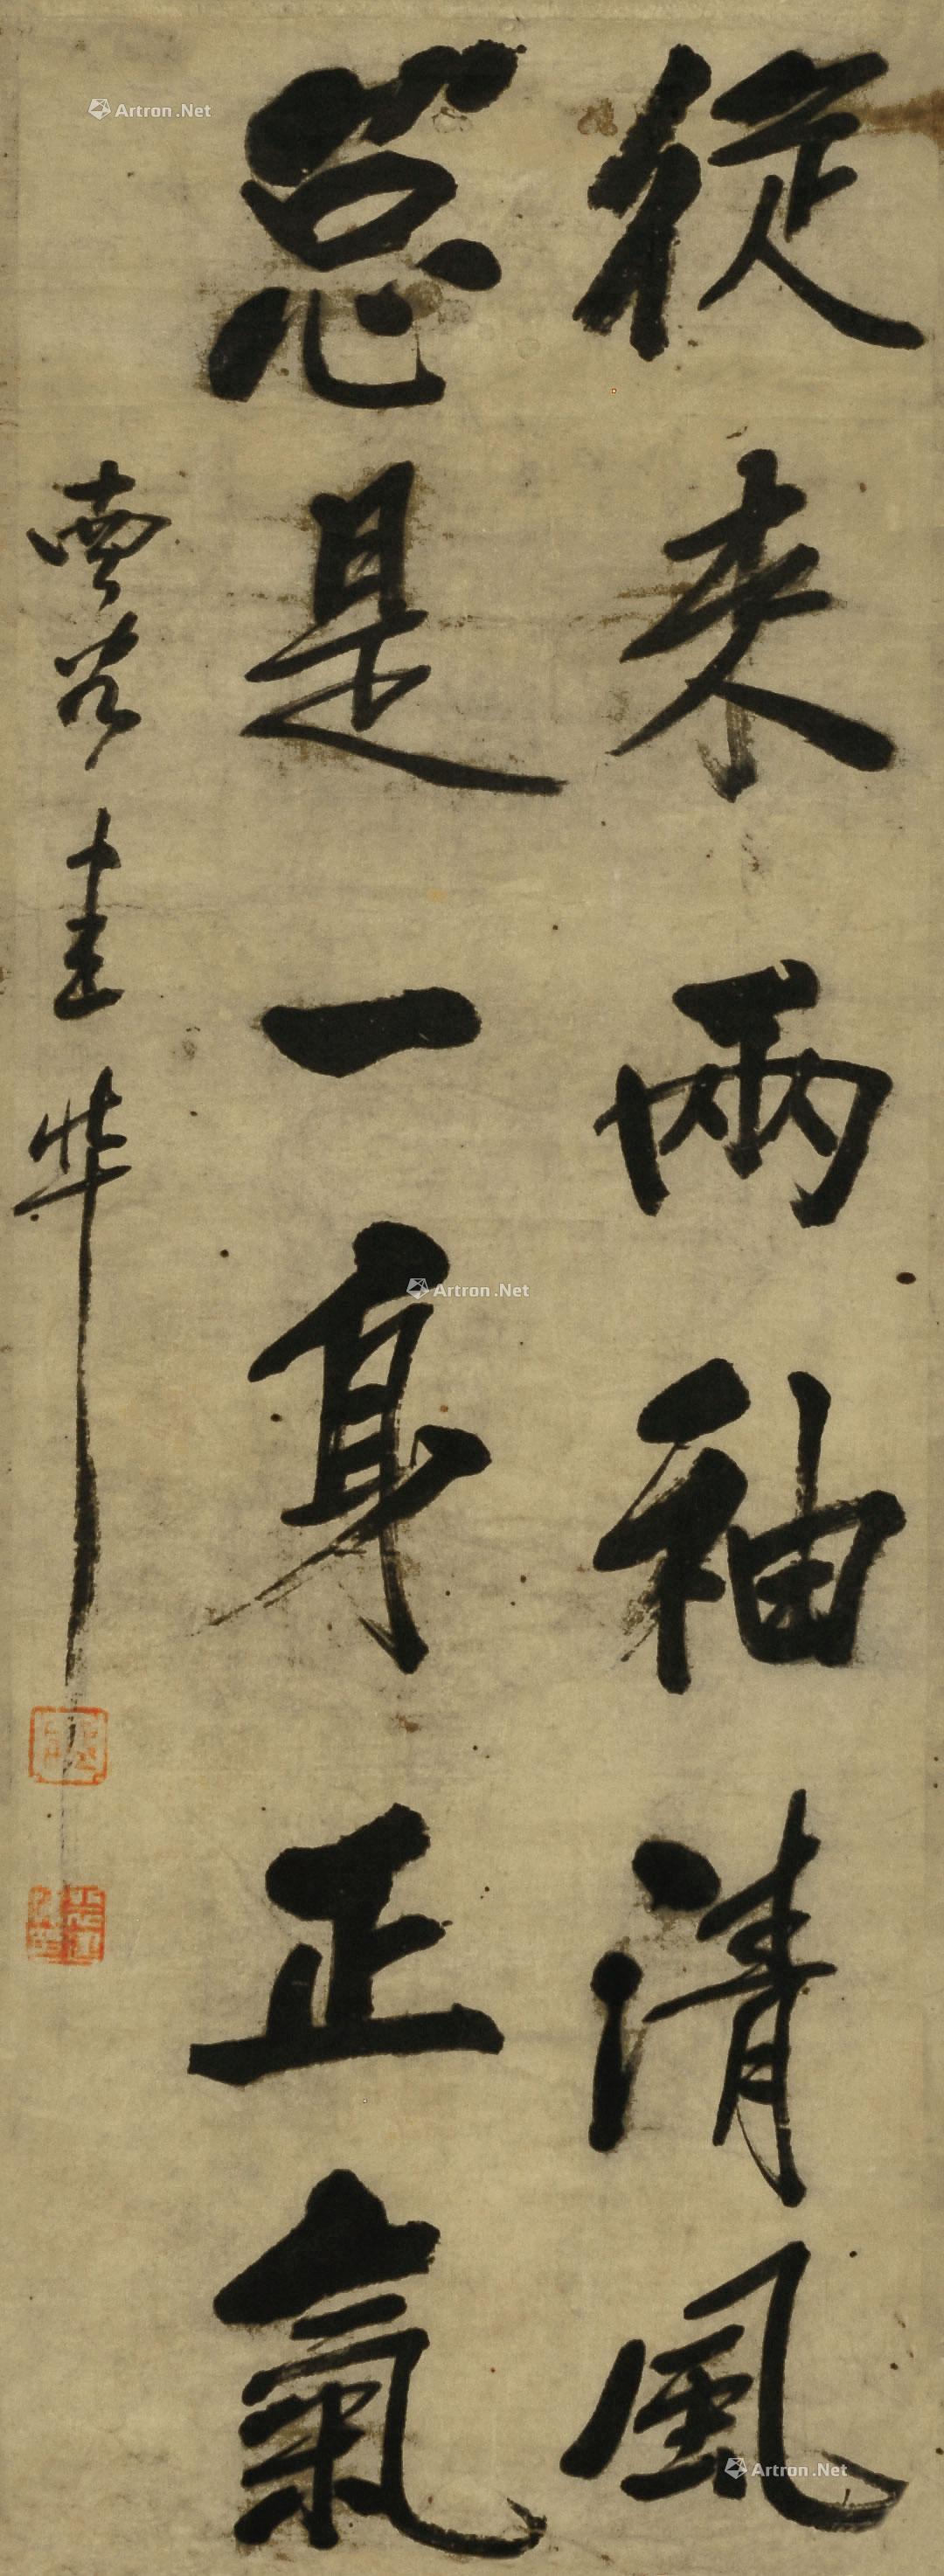 從来兩袖清風
总是一身正氣
雲谷圭華
Artron.Net
Artron.Net
Artron.Net